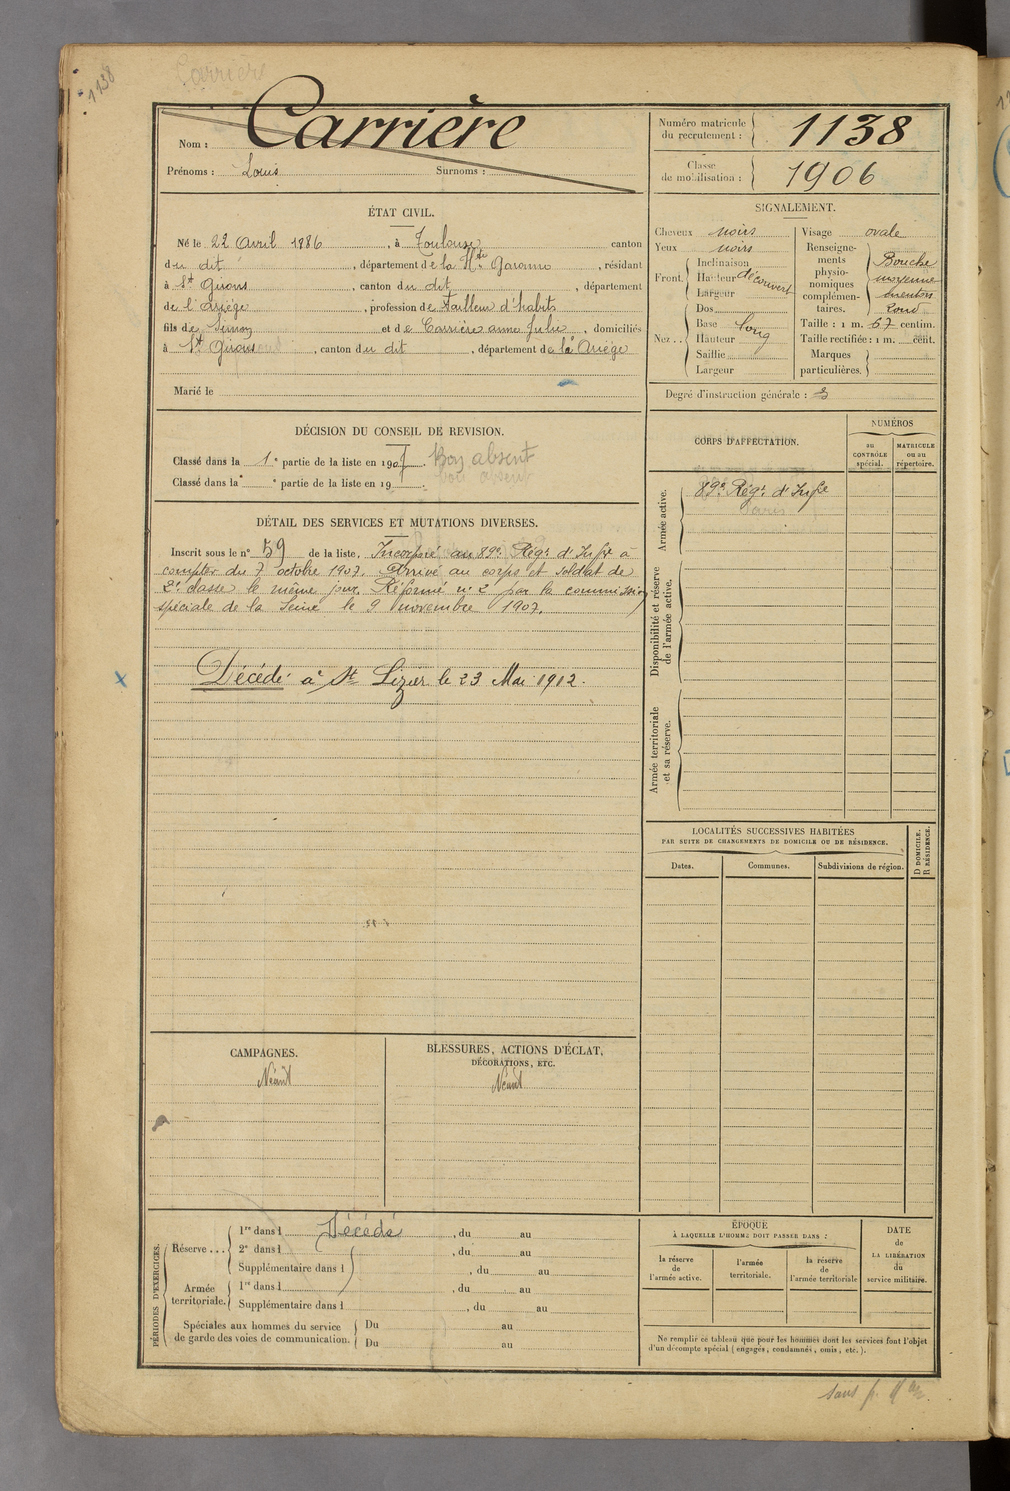 1138
Carrière
Nom : Carrière
Prénoms : Louis Surnoms :
Numéro matricule du recrutement : 1138
Classe de mobilisation : 1906
ÉTAT CIVIL.
Né le 22 Avril 1886, à Toulouse canton
du dit, département de la Hte Garonne, résidant
à St Girons, canton du dit, département
de l'Ariège, profession de Tailleur d'habits
fils de et de Carrière anne Julie, domiciliés
à St Girons, canton du dit, département de la Ariège
Marié le
SIGNALEMENT.
Cheveux noirs
Yeux noirs
Front. Inclinaison
Hauteur découvert
Largeur
Nez.. Dos
Base long
Hauteur
Saillie
Largeur
Visage ovale
Renseignements physionomiques complémentaires. Bouche
moyenne
menton
rond
Taille : 1 m. 67 centim.
Taille rectifiée : 1 m. cent.
Marques particulières.
Degré d'instruction générale : 3
DÉCISION DU CONSEIL DE REVISION.
Classé dans la 1e partie de la liste en 1907. Bon absent
Classé dans la e partie de la liste en 19
DÉTAIL DES SERVICES ET MUTATIONS DIVERSES.
Inscrit sous le n° 59 de la liste. Incorporé au 89e Régt d'Infie à
compter du 7 octobre 1907. Arrivé au corps et soldat de
2e classe le même jour. Réformé n° 2 par la commission
spéciale de la Seine le 9 novembre 1907.
Décédé à St Lizier le 23 Mai 1912.
CORPS D'AFFECTATION.
NUMÉROS
au CONTRÔLE spécial.
MATRICULE ou au répertoire.
Armée active.
89e Régt d'Infie
Disponibilité et réserve de l'armée active.
Armée territoriale et sa réserve.
LOCALITÉS SUCCESSIVES HABITÉES
PAR SUITE DE CHANGEMENTS DE DOMICILE OU DE RÉSIDENCE.
Dates. Communes. Subdivisions de région.
D DOMICILE.
R RÉSIDENCE.
CAMPAGNES.
Néant
BLESSURES, ACTIONS D'ÉCLAT,
DÉCORATIONS, ETC.
Néant
PÉRIODES D'EXERCICES.
Réserve... 1re dans l Décédé, du au
2e dans l, du au
Supplémentaire dans l, du au
Armée territoriale. 1re dans l, du au
Supplémentaire dans l, du au
Spéciales aux hommes du service
de garde des voies de communication. Du au
Du au
ÉPOQUE
À LAQUELLE L'HOMME DOIT PASSER DANS :
la réserve de l'armée active.
l'armée territoriale.
la réserve de l'armée territoriale
DATE de LA LIBÉRATION du service militaire.
Ne remplir ce tableau que pour les hommes dont les services font l'objet
d'un décompte spécial (engagés, condamnés, omis, etc.).